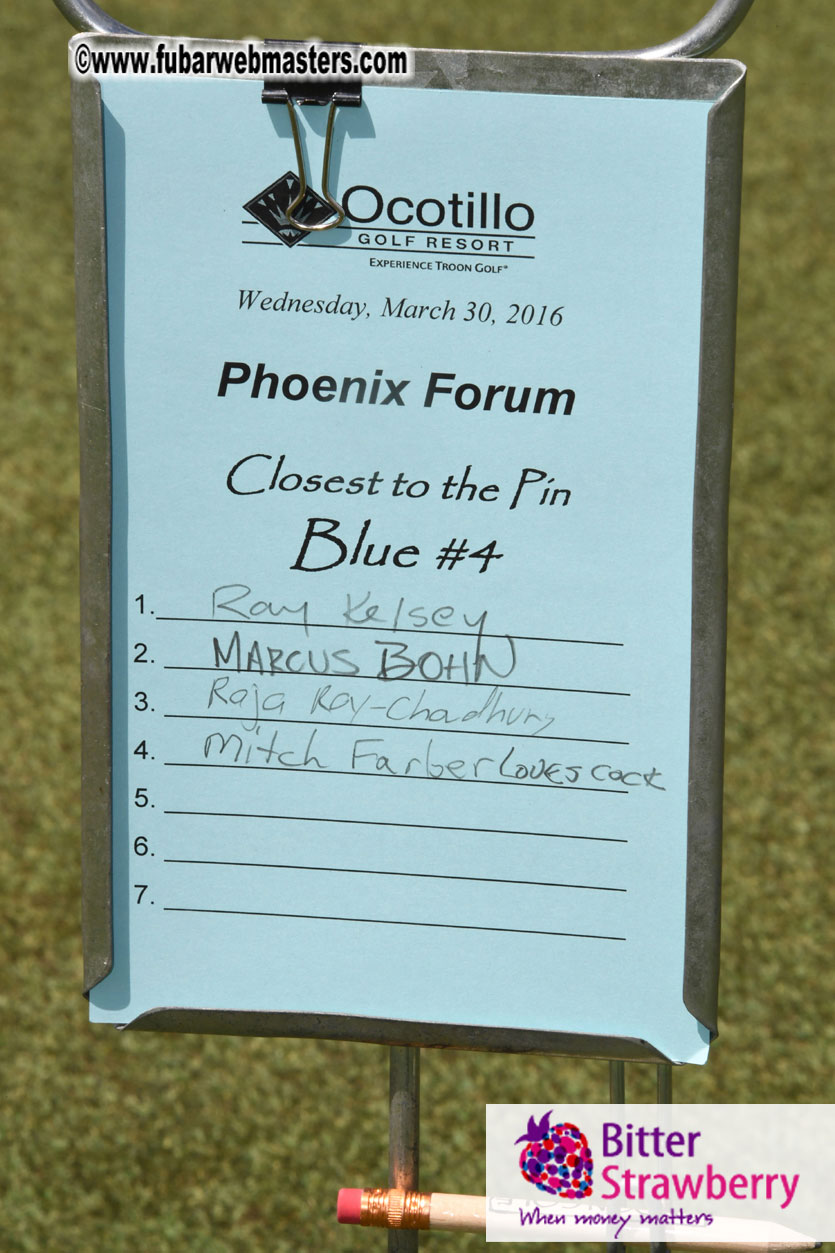 ©www.fubarwebmasters.com
Ocotillo
GOLF RESORT
EXPERIENCE TROON GOLF®
Wednesday, March 30, 2016
Phoenix Forum
Closest to the Pin
Blue #4
1. Ray Kelsey
2. MARCUS BOHN
3. Raja Roy-Chaudhury
4. Mitch Farber Loves cock
5.
6.
7.
Bitter
Strawberry
When money matters